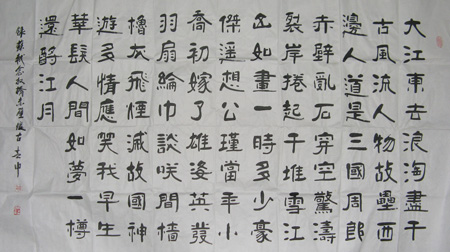 大江東去浪淘盡千
古風流人物故壘西
邊人道是三國周郎
赤壁亂石穿空驚濤
裂岸捲起千堆雪江
山如畫一時多少豪
傑遥想公瑾當年小
喬初嫁了雄姿英發
羽扇綸巾談咲間檣
櫓灰飛煙滅故國神
遊多情應笑我早生
華髮人間如夢一樽
還酹江月
錄蘇軾念奴嬌赤壁懷古